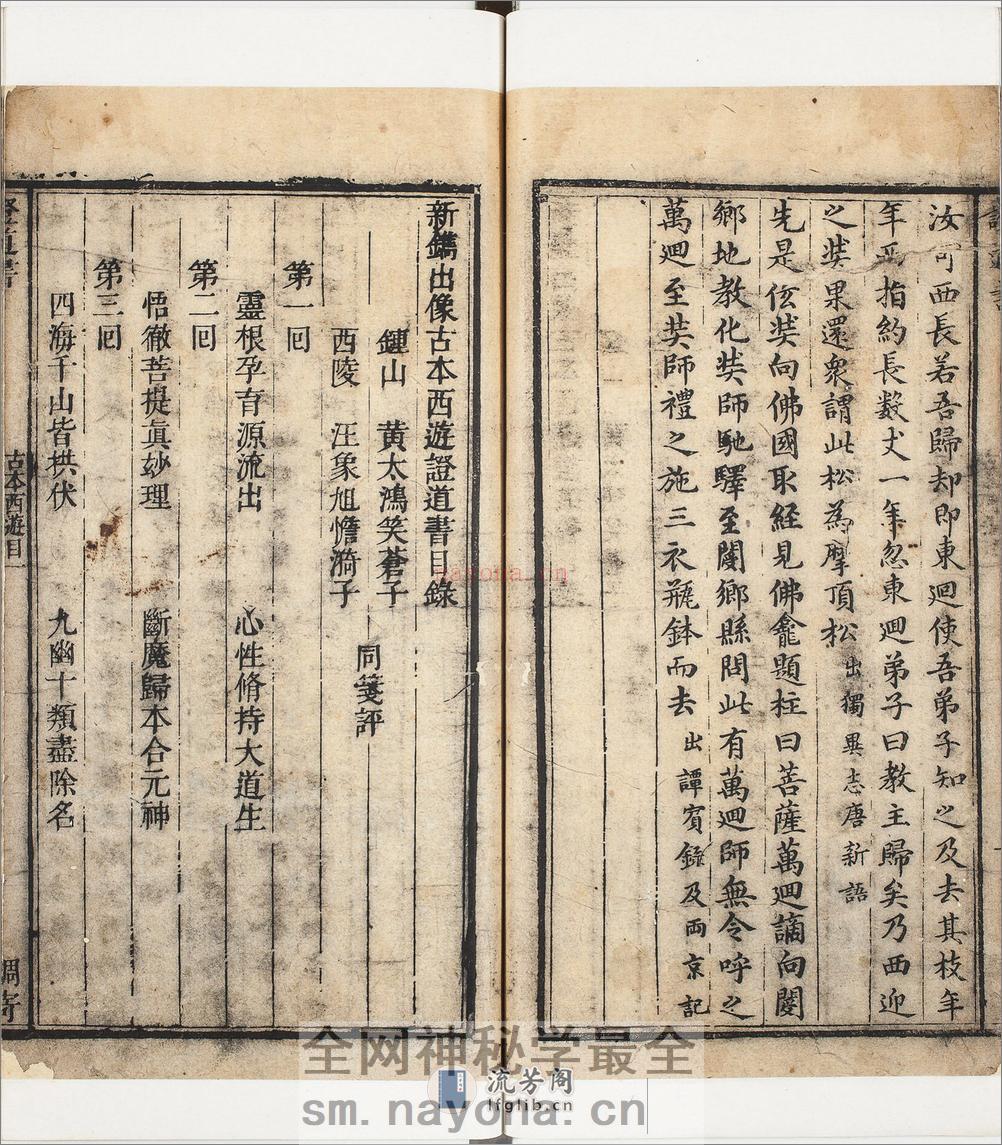 汝可西長若吾歸却即東迴使吾弟子知之及去其枝年
年西指約長数丈一年忽東迴弟子曰教主歸矣乃西迎
之奘果還衆謂此松為摩頂松出獨異志唐新語
先是伭奘向佛國取經見佛龕題柱曰菩薩萬迴謫向閿
鄉地教化奘師馳驛至閿鄉縣問此有萬迴師無令呼之
萬迴至奘師禮之施三衣瓶鉢而去出譚賓錄及両京記
新鐫出像古本西遊證道書目錄
鍾山 黃太鴻笑蒼子
西陵 汪象旭憺漪子
同箋評
第一囘
靈根孕育源流出 心性脩持大道生
第二囘
悟徹菩提眞玅理 斷魔歸本合元神
第三囘
四海千山皆拱伏 九幽十類盡除名
古本西遊目一
nayona.cn
全网神秘学最全
流芳阁
lfglib.cn
sm.nayona.cn